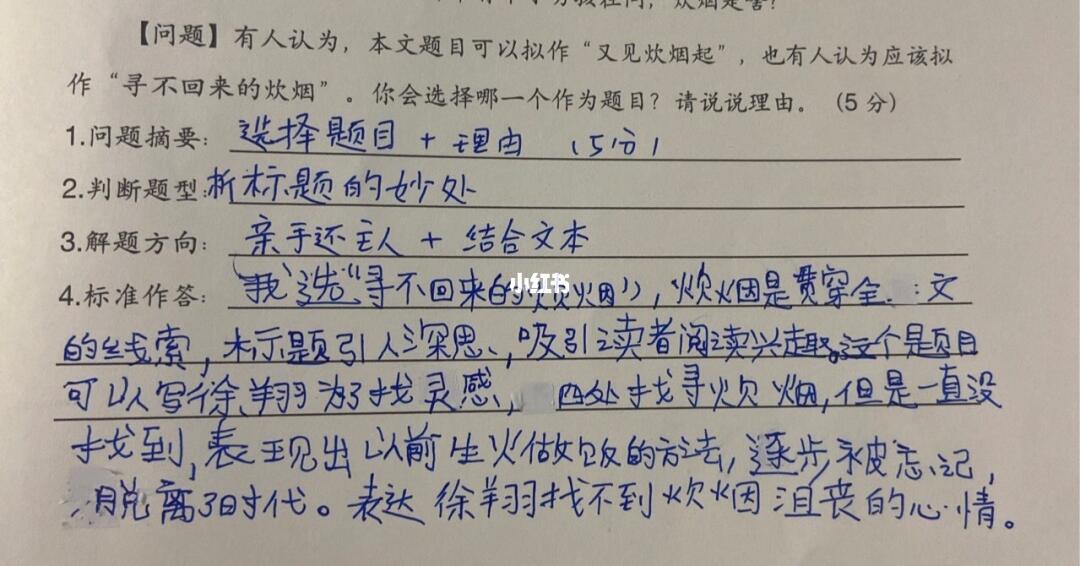 炊烟是啥?
【问题】有人认为，本文题目可以拟作“又见炊烟起”，也有人认为应该拟
作“寻不回来的炊烟”。你会选择哪一个作为题目？请说说理由。（5 分）
1.问题摘要：选择题目 + 理由 （5分）
2.判断题型:析标题的妙处
3.解题方向：亲手还主人 + 结合文本
4.标准作答：我选“寻不回来的炊烟”，炊烟是贯穿全文
小红书
的线索，标题引人深思，吸引读者阅读兴趣。这个题目
可以写徐翔羽为了找灵感，四处找寻炊烟，但是一直没
找到，表现出以前生火做饭的方法，逐步被忘记，
脱离了时代。表达徐翔羽找不到炊烟沮丧的心情。